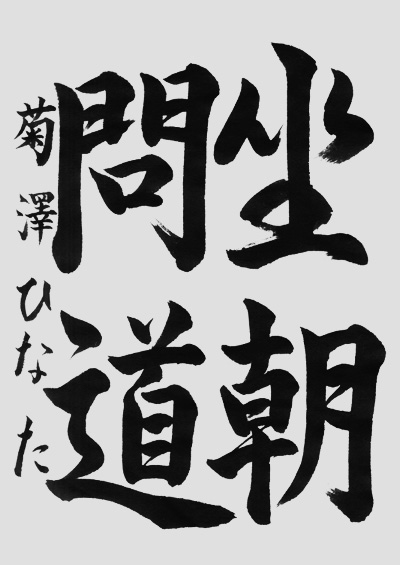 坐朝
問道
菊澤ひなた